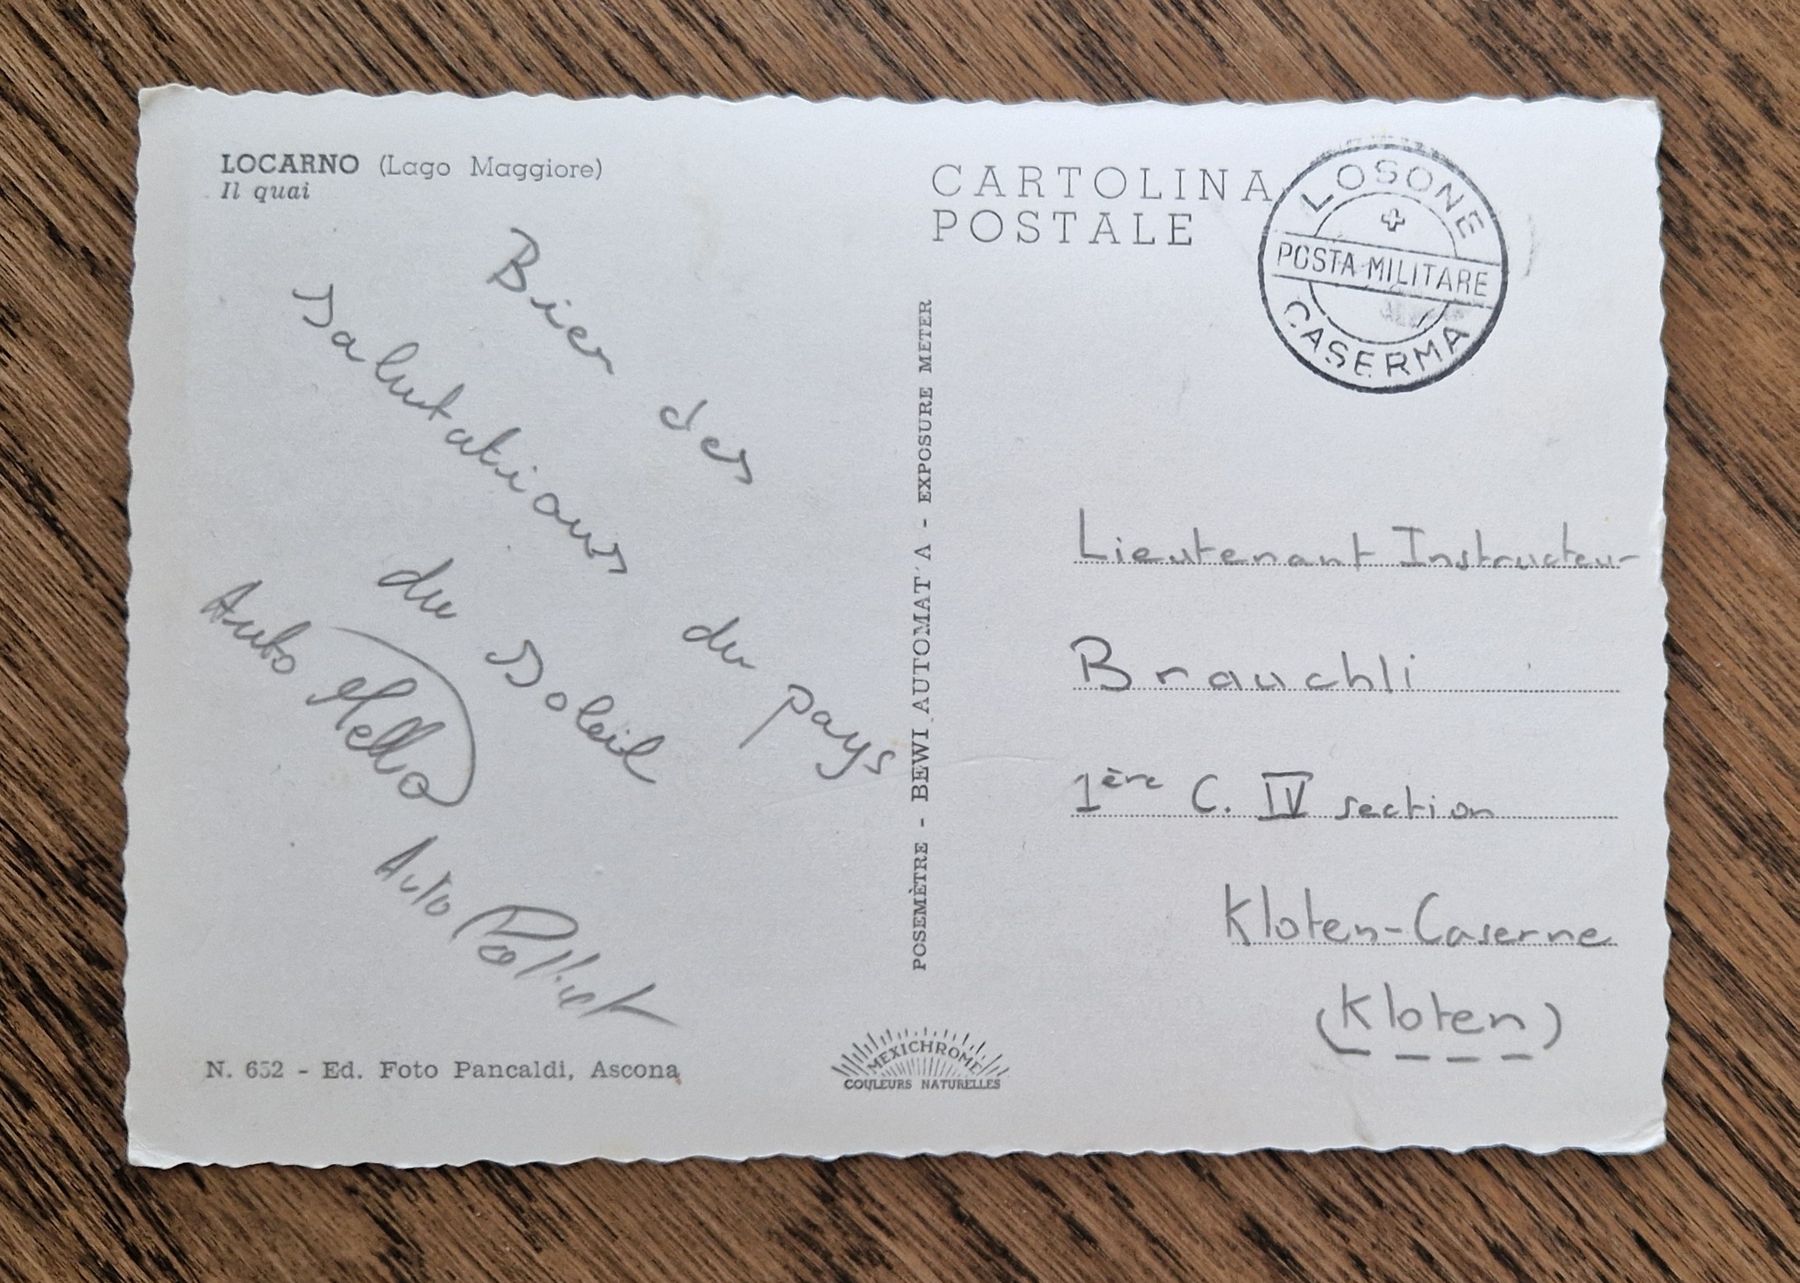 LOCARNO (Lago Maggiore)
Il quai
Bien des
Salutations du pays
du Soleil
Auto Mella
Auto
N. 652 - Ed. Foto Pancaldi, Ascona
POSEMÈTRE - BEWI AUTOMAT'A - EXPOSURE METER
MEXICHROME
COULEURS NATURELLES
CARTOLINA
POSTALE
LOSONE
POSTA MILITARE
CASERMA
Lieutenant Instructeur
Brauchli
1ère C. IV section
Kloten-Caserne
(Kloten)